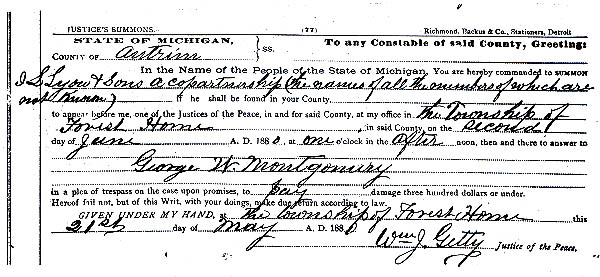 JUSTICE'S SUMMONS. (77) Richmond, Backus & Co., Stationers, Detroit
STATE OF MICHIGAN, To any Constable of said County, Greeting:
COUNTY OF Antrim ss.
In the Name of the People of the State of Michigan, You are hereby commanded to SUMMON
Lyon & Sons a copartnership (the names of all the members of which are
not known) If he shall be found in your County
to appear before me, one of the Justices of the Peace, in and for said County, at my office in the Township of
Forest Home in said County, on the second
day of June A. D. 1880, at one o'clock in the after noon, then and there to answer to
George W. Montgomery
in a plea of trespass on the case upon promises, to pay damage three hundred dollars or under.
Hereof fail not, but of this Writ, with your doings, make due return according to law.
GIVEN UNDER MY HAND, at the Township of Forest Home this
21st day of May A. D. 1880
Wm J. Getty Justice of the Peace.